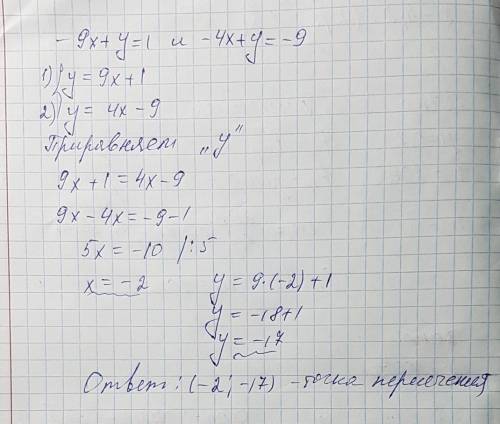 -9x+y=1 и -4x+y=-9
1) { y=9x+1
2) { y= 4x-9
Приравняем „y"
9x+1=4x-9
9x-4x=-9-1
5x=-10 |:5
x=-2 y=9·(-2)+1
y=-18+1
y=-17
Ответ: (-2; -17) -точка пересечения